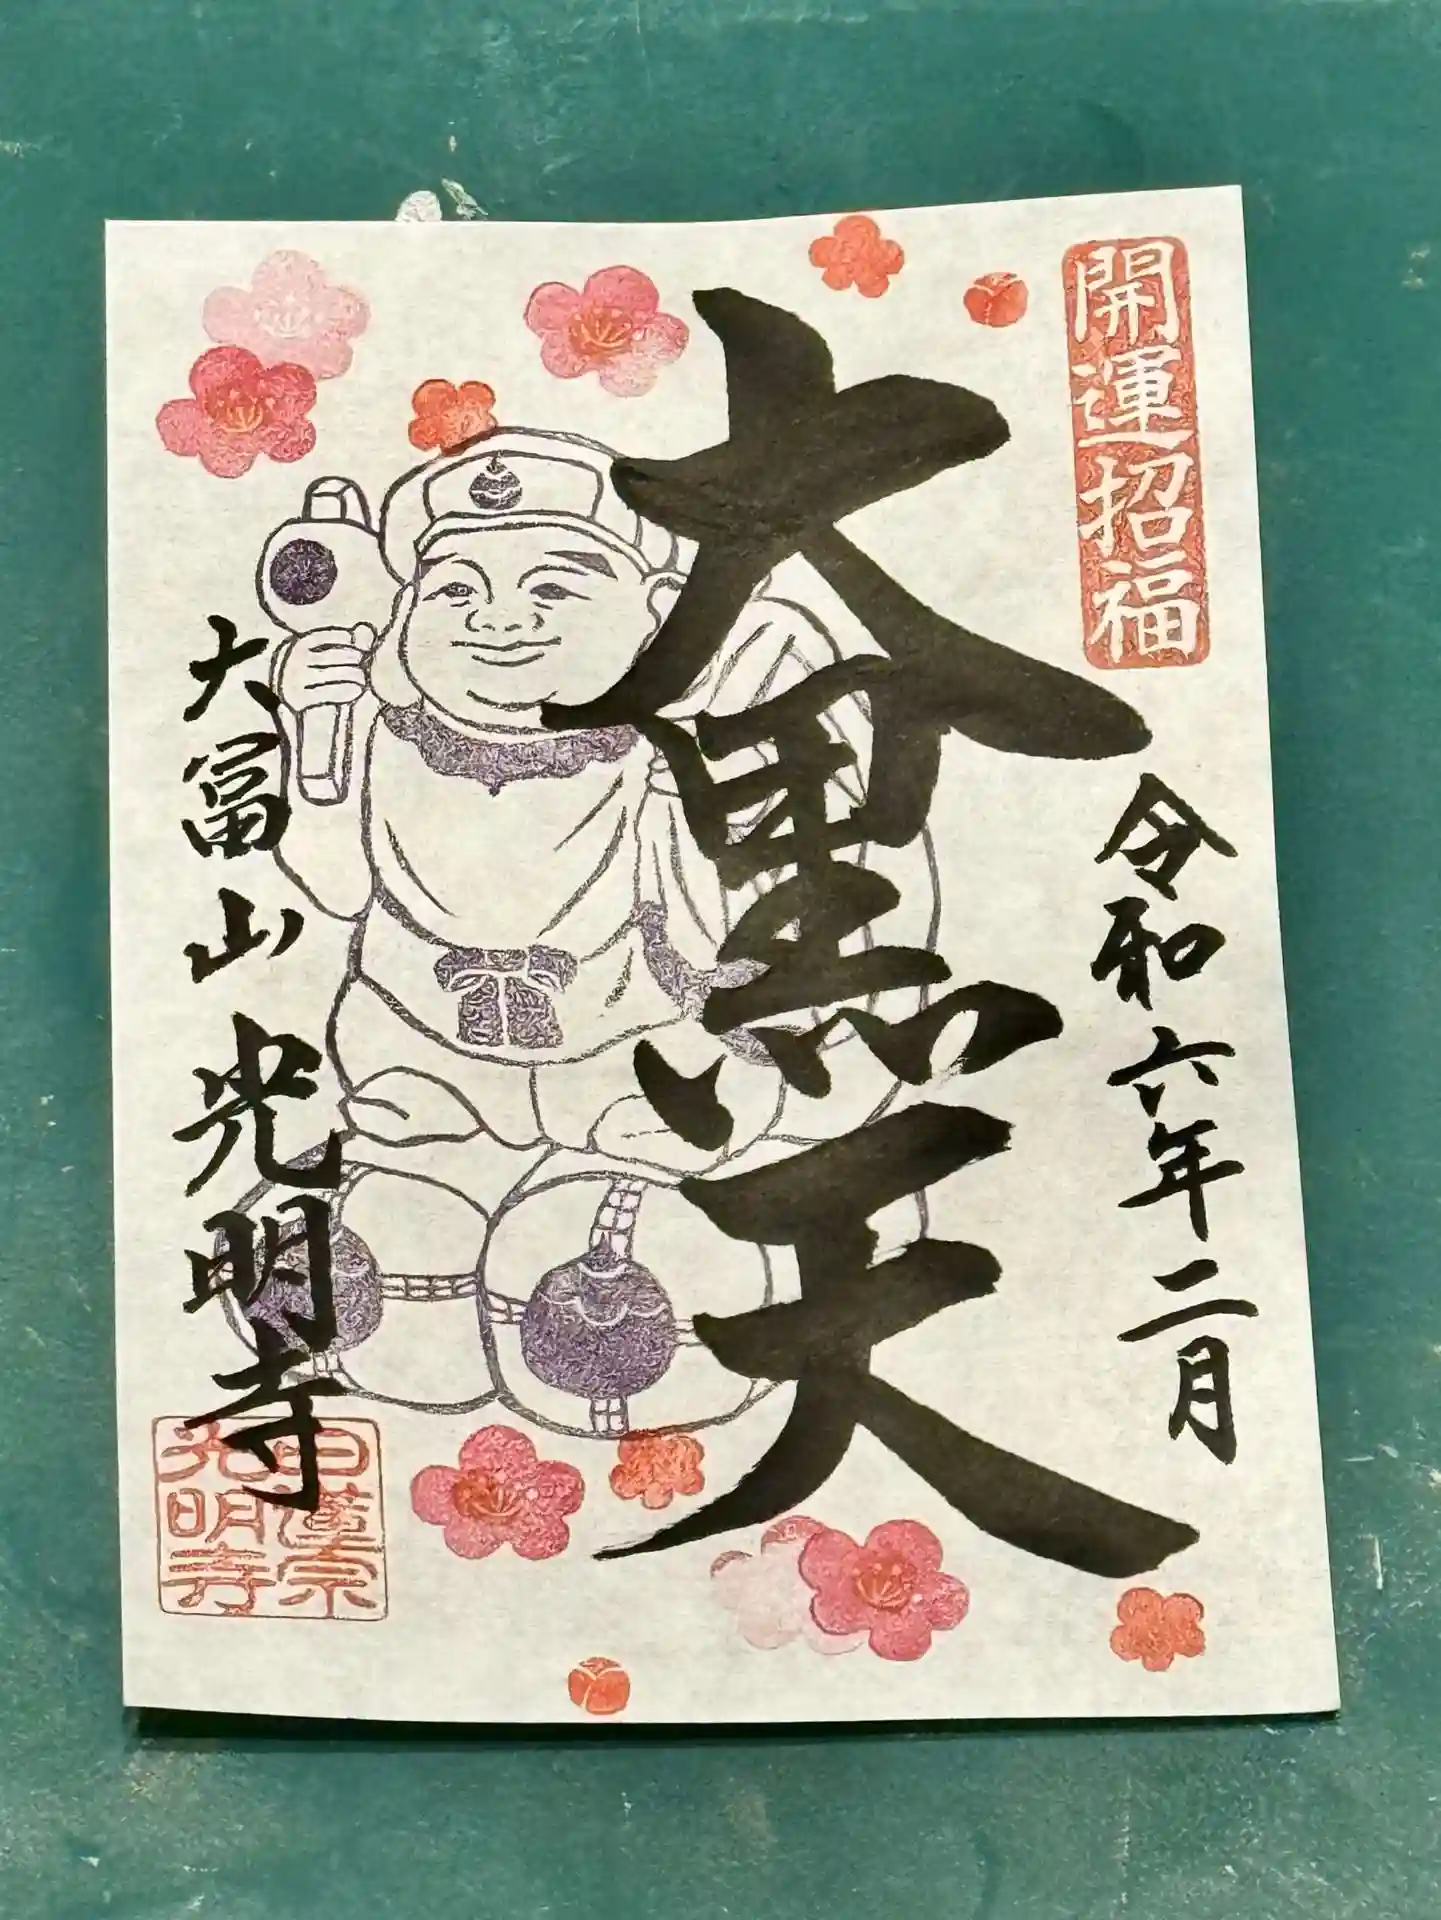 開運招福
令和六年二月
大黒天
大冨山 光明寺
日蓮宗
光明寺